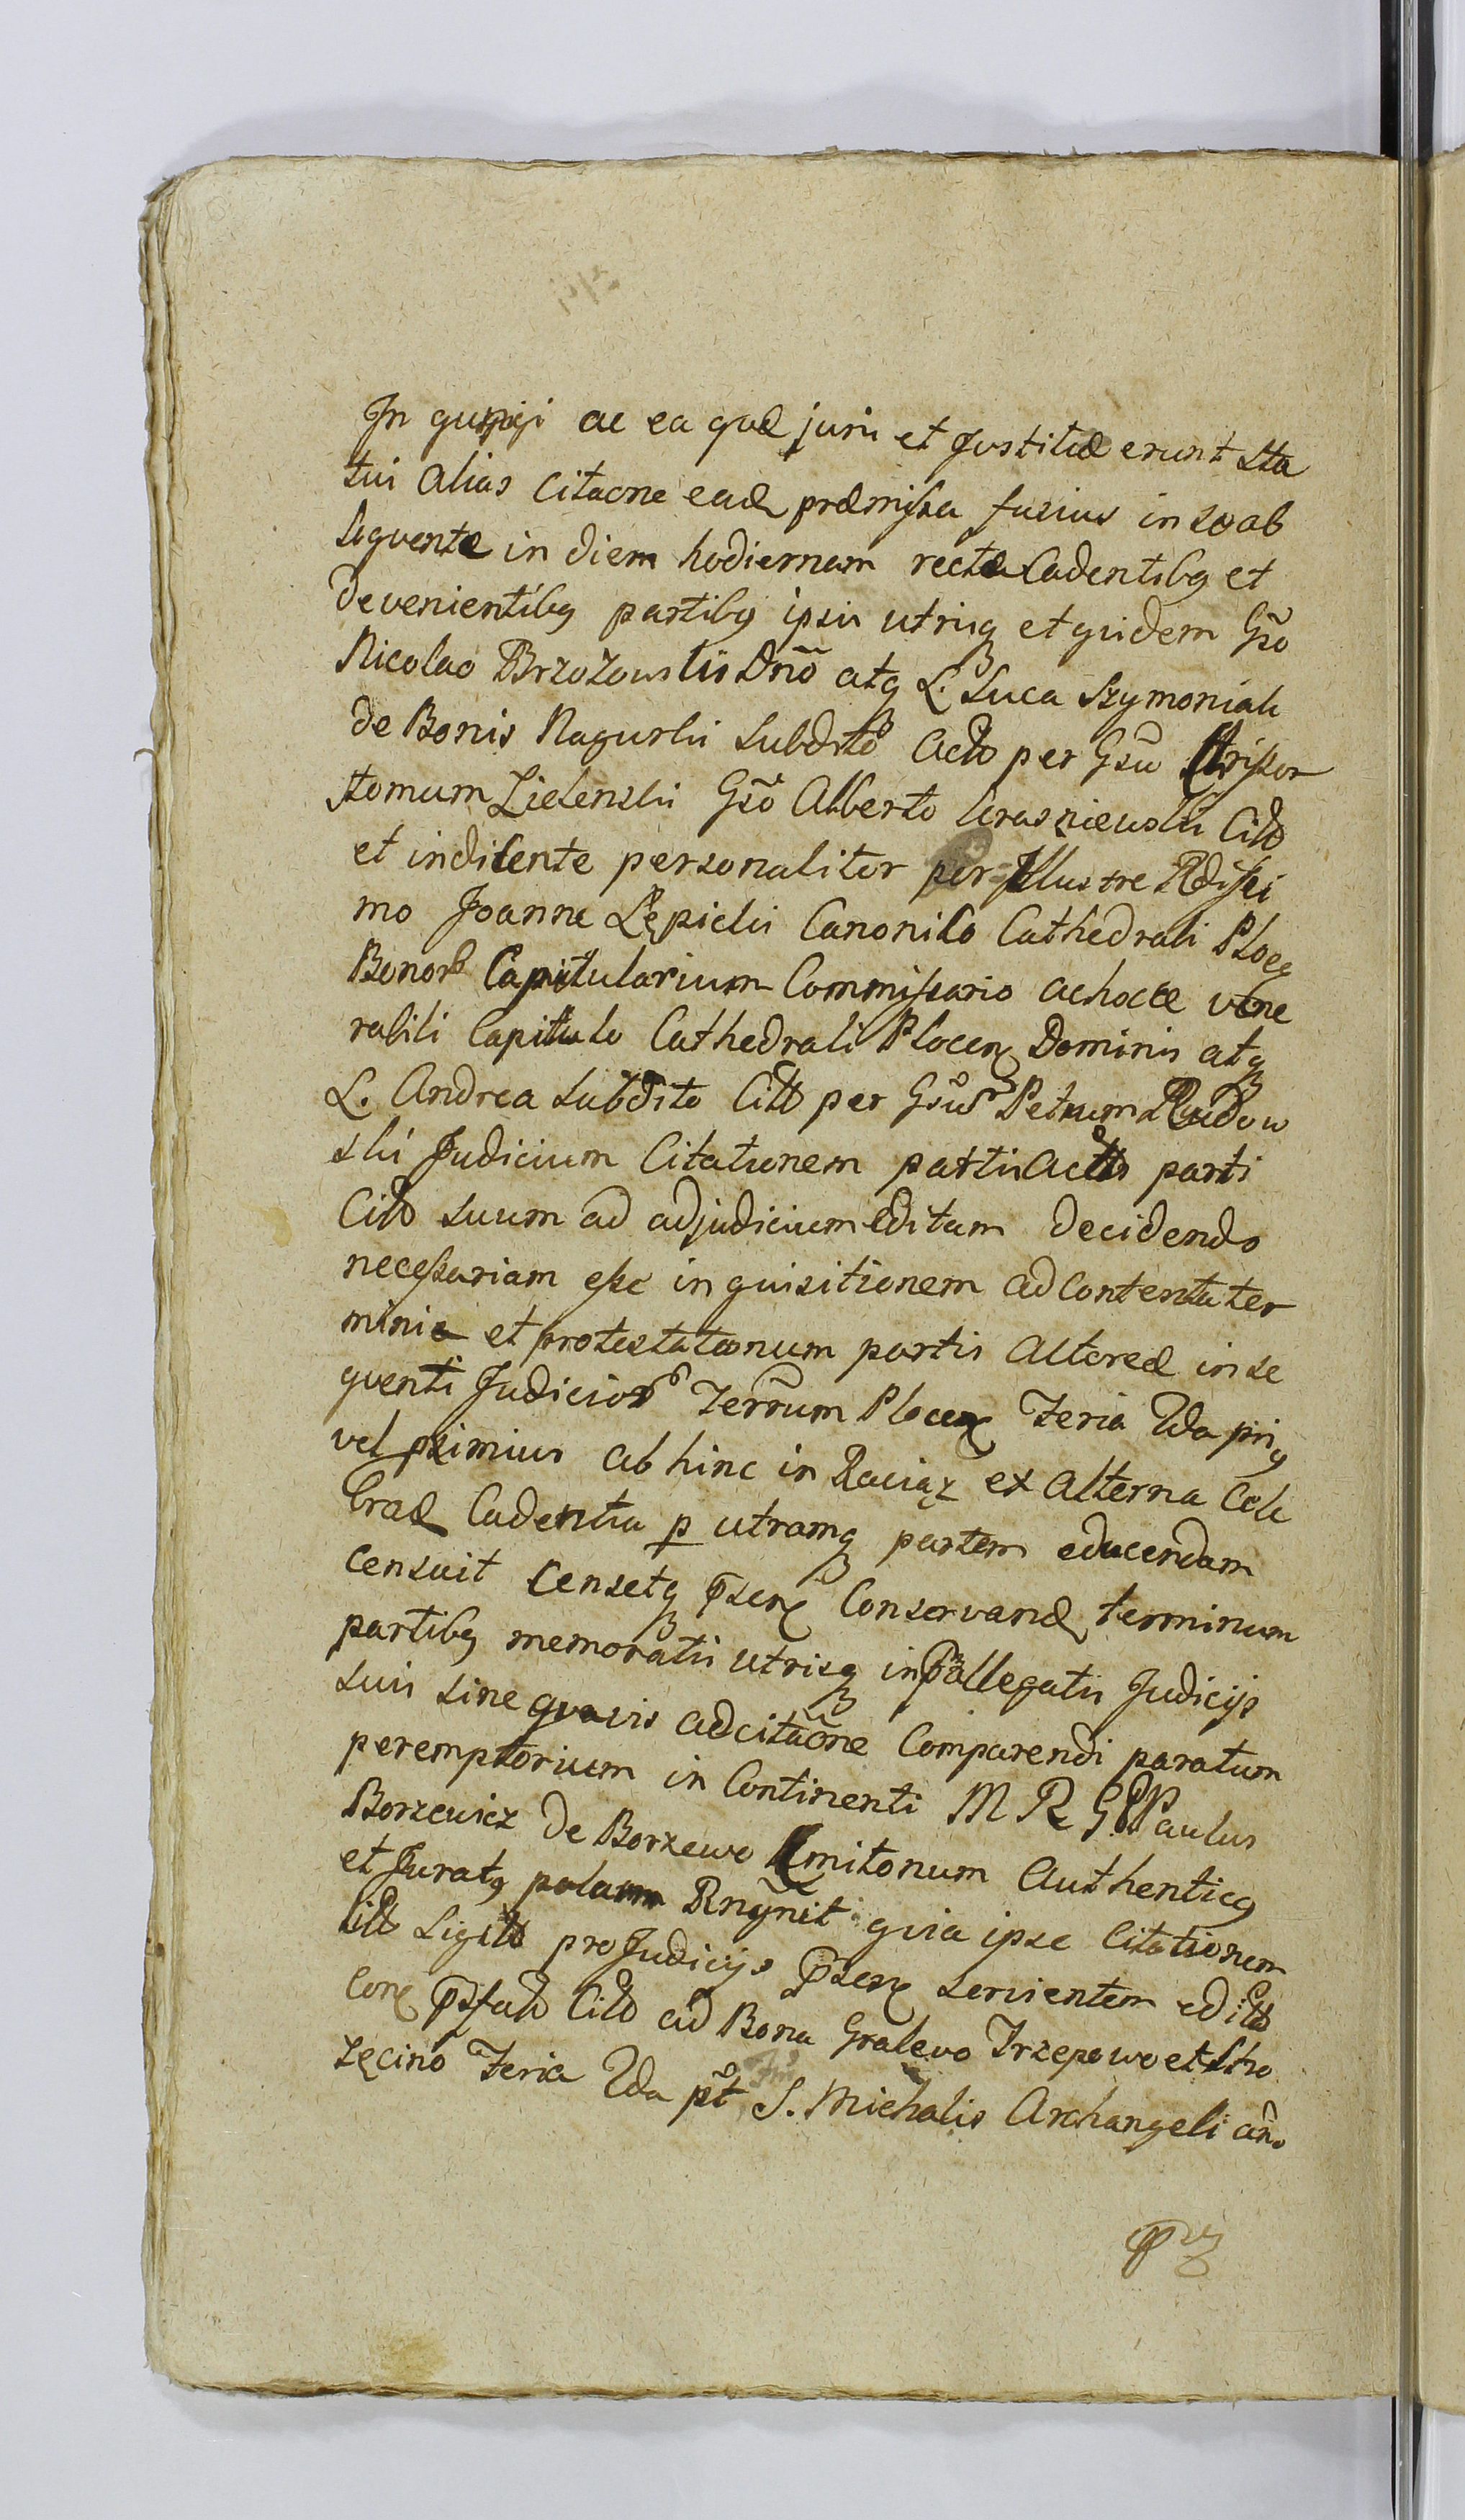 In ac ea quæ juris et Justitiæ erunt sta
tui alias citaõne eadem præmissa fusius in se ab
sequente in diem hodiernam recte Cadentibꝫ et
devenientibꝫ partibꝫ ipsis utrisqꝫ et quidem Gso
Nicolao Brzozowski Dnõ atqꝫ L. Luca Szymoniak
de Bonis Nagurki Subdito Acto per Gsũ Chrisos
tomum Zielenski Gsõ Alberto Krasniewski Citto
et indicente personaliter per Illustre Rdissi
mo Joanne Lępicki Canonico Cathedrali Ploc
Bonorũ Capitularium Commissario ac hocce Vene
rabili Capitulo Cathedrali Plocen Dominis atqꝫ
L. Andrea Subdito Citto per Gsũ Petrum Rudow
ski Judicium Citationem partis Actts parti
Citto suum ad adjudicium Editam decidendo
necessariam esse inquisitionem ad Contenta ter
mini et protestationum partis alteræ in se
quenti Judiciorũ Terrũm Plocen Feria 2da pri
vel primius ab hinc in Raciąż ex alterna Cele
bræ Cadentia p utramqꝫ partem educendam
censuit Censetqꝫ p̃sen Conservand terminum
partibꝫ memoratis utrisqꝫ in p̃allegatis Judicijs
suis sine quavis adcitaõne Comparendi paratum
peremptorium in Continenti M R G Paulus
Borzewicz de Borzewo Kmitonum Authenticꝫ
et Juratꝫ palam Rngñit quia ipse Citationem
Citt Sigitt pro Judicijs p̃sen servientem editt
Con p̃fato Citto ad Bona Gralewo Trzepowo et Stro
zęcino Feria 2da pt̃ S. Michalis Archangeli an̄o